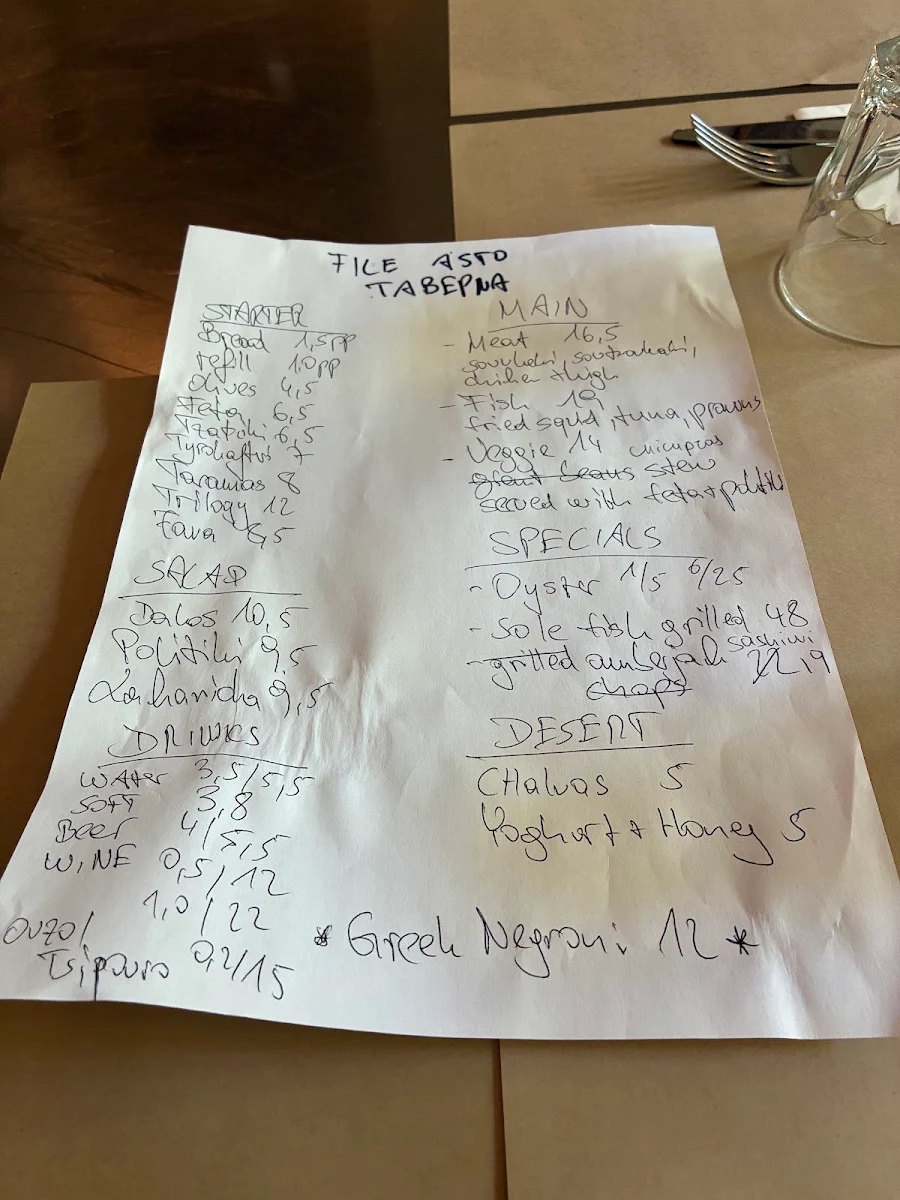 FILE ASTO
TABEPNA
STARTER
Bread 1,5pp
refill 1.0pp
Olives 4,5
Feta 6,5
Tzatziki 6,5
Tyrokaftri 7
Taramas 8
Trilogy 12
Fava 6,5
SALAD
Dakos 10,5
Politiki 9,5
Laxanida 9,5
DRINKS
WATER 3,5/5,5
SOFT 3,8
Beer 4/5,5
WINE 0,5/12
1,0/22
OUZO/
Tsipouro 0,2/15
MAIN
- Meat 16,5
souvlaki, soutzakaki,
chiken thigh
- Fish 19
fried squid, tuna, prawns
- Veggie 14 chickpeas
giant beans stew
served with feta+politiki
SPECIALS
- Oyster 1/5 6/25
- Sole fish grilled 48
- grilled amberjack sashimi
chops 22 19
DESERT
CHalvas 5
Yoghurt + Honey 5
* Greek Negroni 12 *